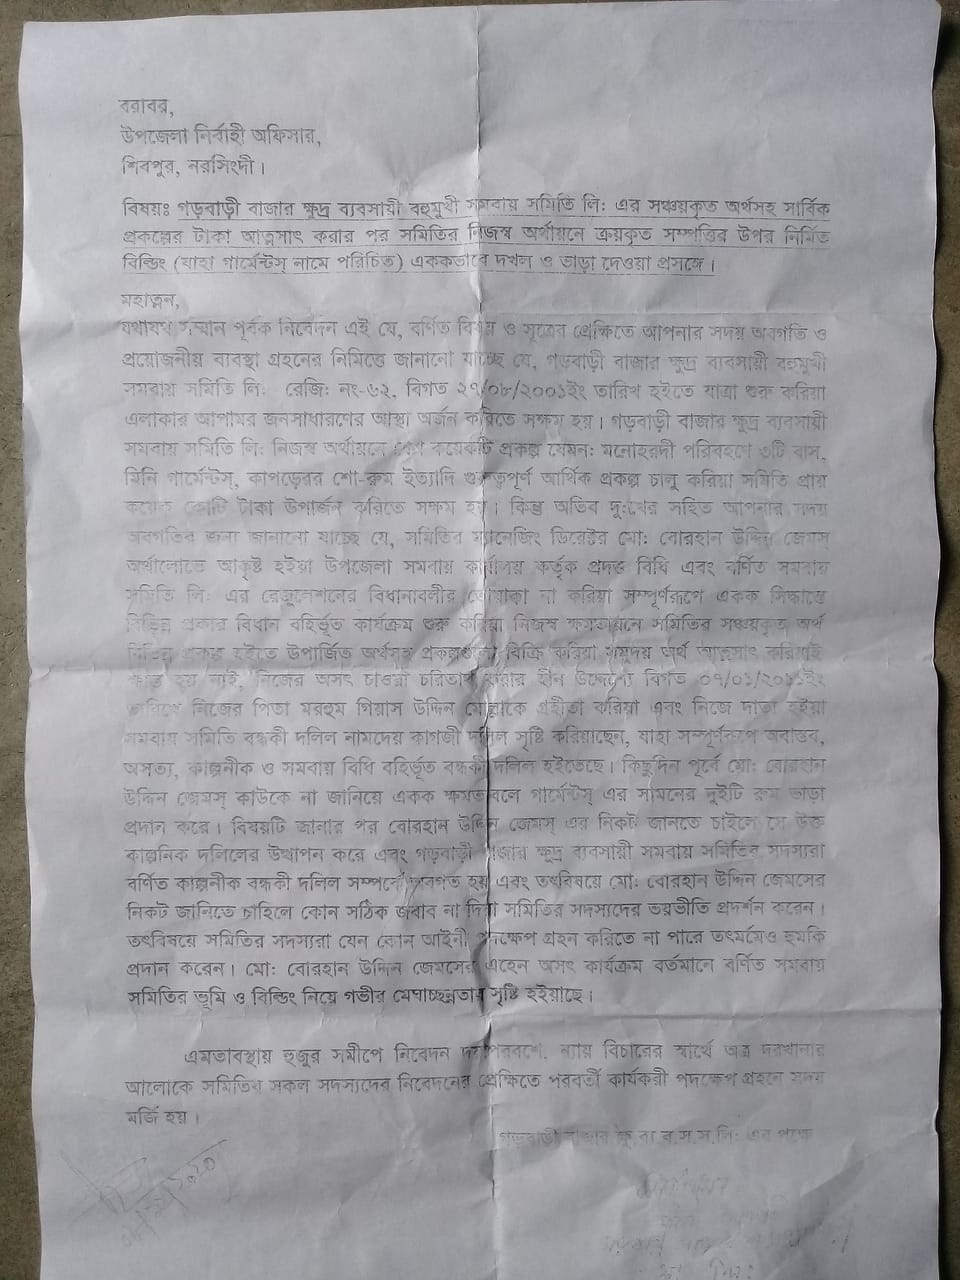 বরাবর,
উপজেলা নির্বাহী অফিসার,
শিবপুর, নরসিংদী।
বিষয়ঃ গড়বাড়ী বাজার ক্ষুদ্র ব্যবসায়ী বহুমুখী সমবায় সমিতি লি: এর সঞ্চয়কৃত অর্থসহ সার্বিক
প্রকল্পের টাকা আত্মসাৎ করার পর সমিতির নিজস্ব অর্থায়নে ক্রয়কৃত সম্পত্তির উপর নির্মিত
বিল্ডিং (যাহা গার্মেন্টস্ নামে পরিচিত) এককভাবে দখল ও ভাড়া দেওয়া প্রসঙ্গে।
মহাত্মন,
যথাযথ সম্মান পূর্বক নিবেদন এই যে, বর্ণিত বিষয় ও সূত্রের প্রেক্ষিতে আপনার সদয় অবগতি ও
প্রয়োজনীয় ব্যবস্থা গ্রহনের নিমিত্তে জানানো যাচ্ছে যে, গড়বাড়ী বাজার ক্ষুদ্র ব্যবসায়ী বহুমুখী
সমবায় সমিতি লি: রেজি: নং-৬২, বিগত ২৭/০৮/২০০১ইং তারিখ হইতে যাত্রা শুরু করিয়া
এলাকার আপামর জনসাধারণের আস্থা অর্জন করিতে সক্ষম হয়। গড়বাড়ী বাজার ক্ষুদ্র ব্যবসায়ী
সমবায় সমিতি লি: নিজস্ব অর্থায়নে বেশ কয়েকটি প্রকল্প যেমন: মনোহরদী পরিবহণে ৩টি বাস,
মিনি গার্মেন্টস্, কাপড়ের শো-রুম ইত্যাদি গুরুত্বপূর্ণ আর্থিক প্রকল্প চালু করিয়া সমিতি প্রায়
কয়েক কোটি টাকা উপার্জন করিতে সক্ষম হয়। কিন্তু অতিব দু:খের সহিত আপনার সদয়
অবগতির জন্য জানানো যাচ্ছে যে, সমিতির ম্যানেজিং ডিরেক্টর মো: বোরহান উদ্দিন জেমস্
অর্থলোভে আকৃষ্ট হইয়া উপজেলা সমবায় কার্যালয় কর্তৃক প্রদত্ত বিধি এবং বর্ণিত সমবায়
সমিতি লি: এর রেজুলেশনের বিধানাবলীর তোয়াক্কা না করিয়া সম্পূর্ণরূপে একক সিদ্ধান্তে
বিভিন্ন প্রকার বিধান বহির্ভূত কার্যক্রম শুরু করিয়া নিজস্ব ক্ষমতায়নে সমিতির সঞ্চয়কৃত অর্থ
বিভিন্ন প্রকল্প হইতে উপার্জিত অর্থসহ প্রকল্পগুলো বিক্রি করিয়া সমুদয় অর্থ আত্মসাৎ করিয়াই
ক্ষান্ত হয় নাই, নিজের অসৎ চাওয়া চরিতার্থ করার হীন উদ্দেশ্যে বিগত ০৭/০১/ইং
তারিখে নিজের পিতা মরহুম গিয়াস উদ্দিন মোল্লাকে গ্রহীতা করিয়া এবং নিজে দাতা হইয়া
সমবায় সমিতি বন্ধকী দলিল নামদেয় কাগজী দলিল সৃষ্টি করিয়াছেন, যাহা সম্পূর্ণরূপে অবাস্তব,
অসত্য, কাল্পনীক ও সমবায় বিধি বহির্ভূত বন্ধকী দলিল হইতেছে। কিছুদিন পূর্বে মো: বোরহান
উদ্দিন জেমস্ কাউকে না জানিয়ে একক ক্ষমতাবলে গার্মেন্টস্ এর সামনের দুইটি রুম ভাড়া
প্রদান করে। বিষয়টি জানার পর বোরহান উদ্দিন জেমস্ এর নিকট জানতে চাইলে সে উক্ত
কাল্পনিক দলিলের উত্থাপন করে এবং গড়বাড়ী বাজার ক্ষুদ্র ব্যবসায়ী সমবায় সমিতির সদস্যরা
বর্ণিত কাল্পনীক বন্ধকী দলিল সম্পর্কে অবগত হয় এবং তৎবিষয়ে মো: বোরহান উদ্দিন জেমসের
নিকট জানিতে চাহিলে কোন সঠিক জবাব না দিয়া সমিতির সদস্যদের ভয়ভীতি প্রদর্শন করেন।
তৎবিষয়ে সমিতির সদস্যরা যেন কোন আইনী পদক্ষেপ গ্রহন করিতে না পারে তৎমর্মেও হুমকি
প্রদান করেন। মো: বোরহান উদ্দিন জেমসের এহেন অসৎ কার্যক্রম বর্তমানে বর্ণিত সমবায়
সমিতির ভূমি ও বিল্ডিং নিয়ে গভীর মেঘাচ্ছন্নতার সৃষ্টি হইয়াছে।
এমতাবস্থায় হুজুর সমীপে নিবেদন দয়াপরবশে, ন্যায় বিচারের স্বার্থে অত্র দরখাস্তের
আলোকে সমিতির সকল সদস্যদের নিবেদনের প্রেক্ষিতে পরবর্তী কার্যকরী পদক্ষেপ গ্রহনে সদয়
মর্জি হয়।
গড়বাড়ী বাজার ক্ষু.ব্য.ব.স.স.লি: এর পক্ষে